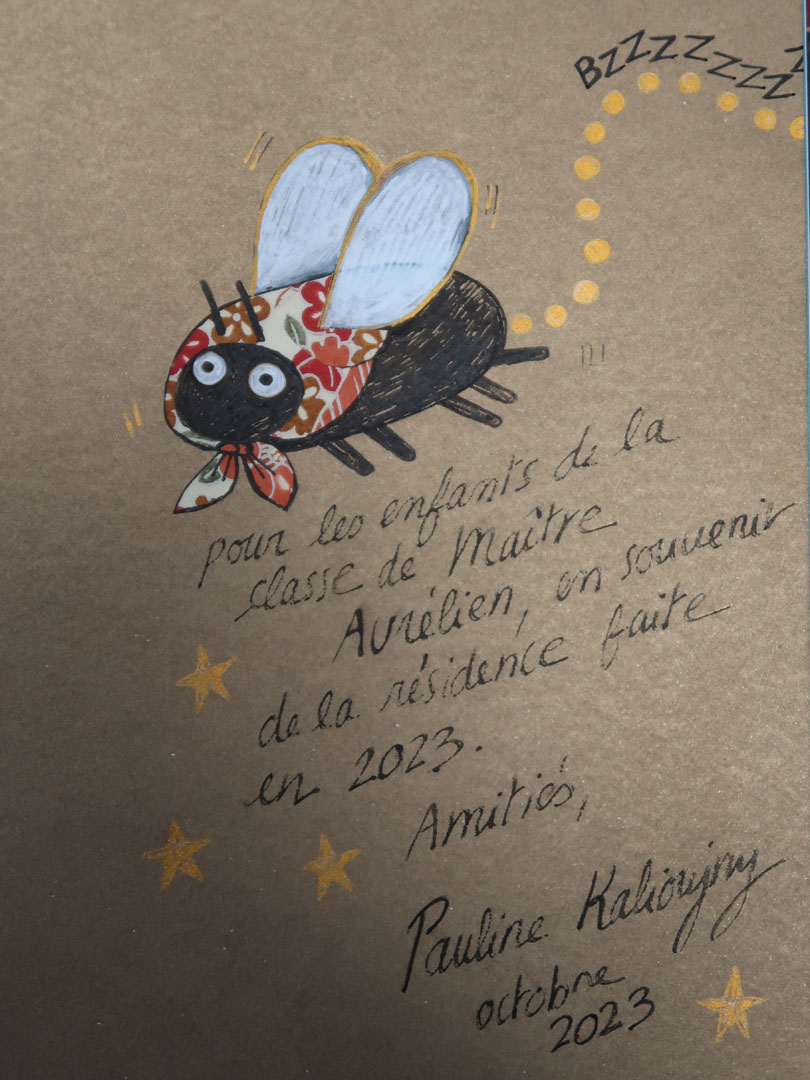 BZZZZZZZZZ
pour les enfants de la
classe de Maître
Aurélien, en souvenir
de la résidence faite
en 2023.
Amitiés,
Pauline Kalioujny
octobre
2023